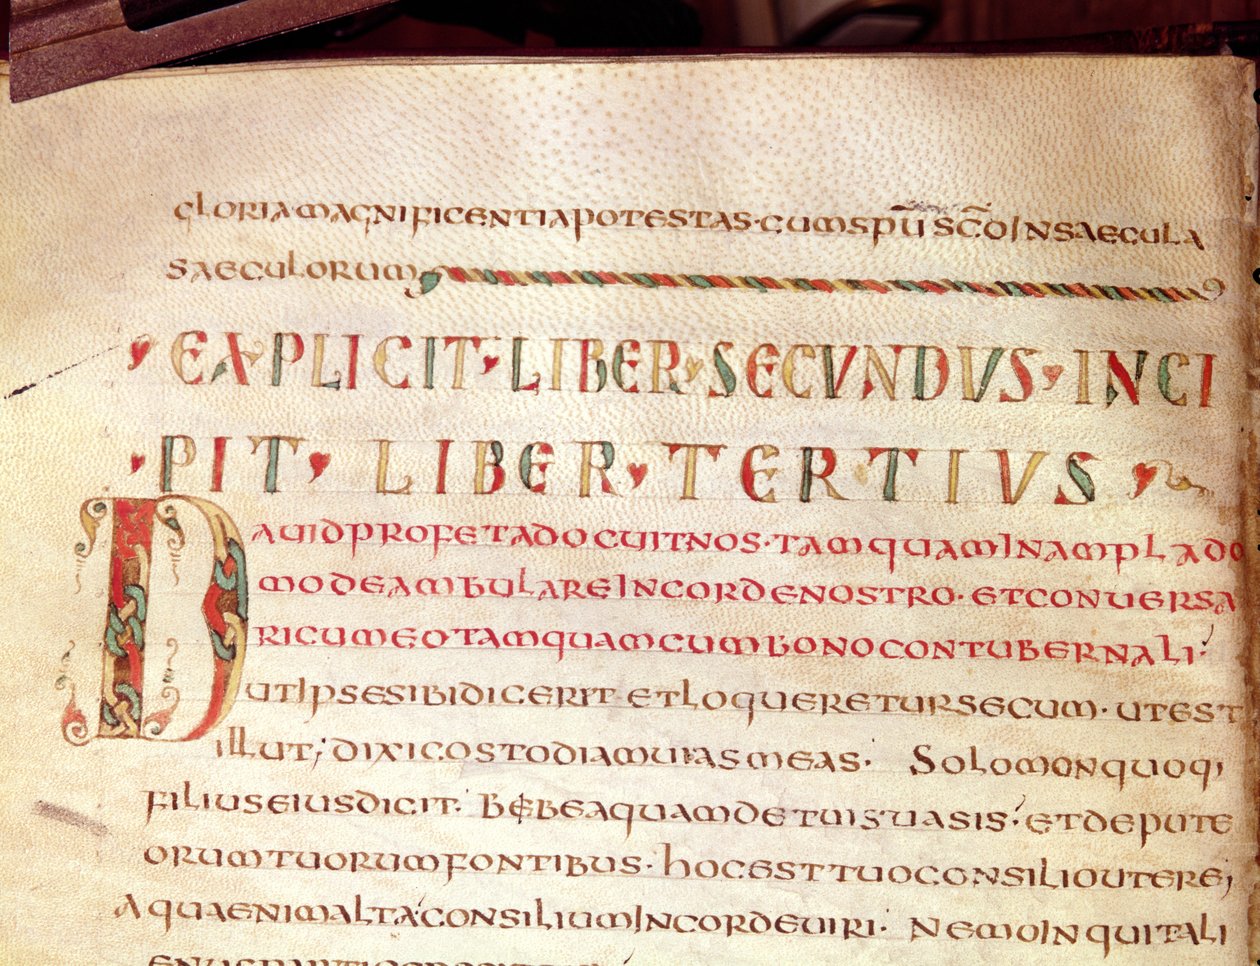 gloria magnificentia potestas · cum spū scō in saecula
saeculorum
EXPLICIT · LIBER · SECUNDUS · INCI
PIT · LIBER · TERTIUS
DAUID PROFETA DOCUIT NOS · TAMQUAM IN AMPLA DO
MO DEAMBULARE IN CORDE NOSTRO · ET CONUERSA
RI CUM EO TAMQUAM CUM BONO CONTUBERNALI ·
ut ipse sibi diceret et loqueretur secum · ut est
illut ; dixi custodiam uias meas · Solomon quoq;
filius eius dicit · bibe aquam de tuis uasis · et de pute
orum tuorum fontibus · hoc est tuo consilio utere ;
Aqua enim alta consilium in corde uiri · Nemo inquit ali